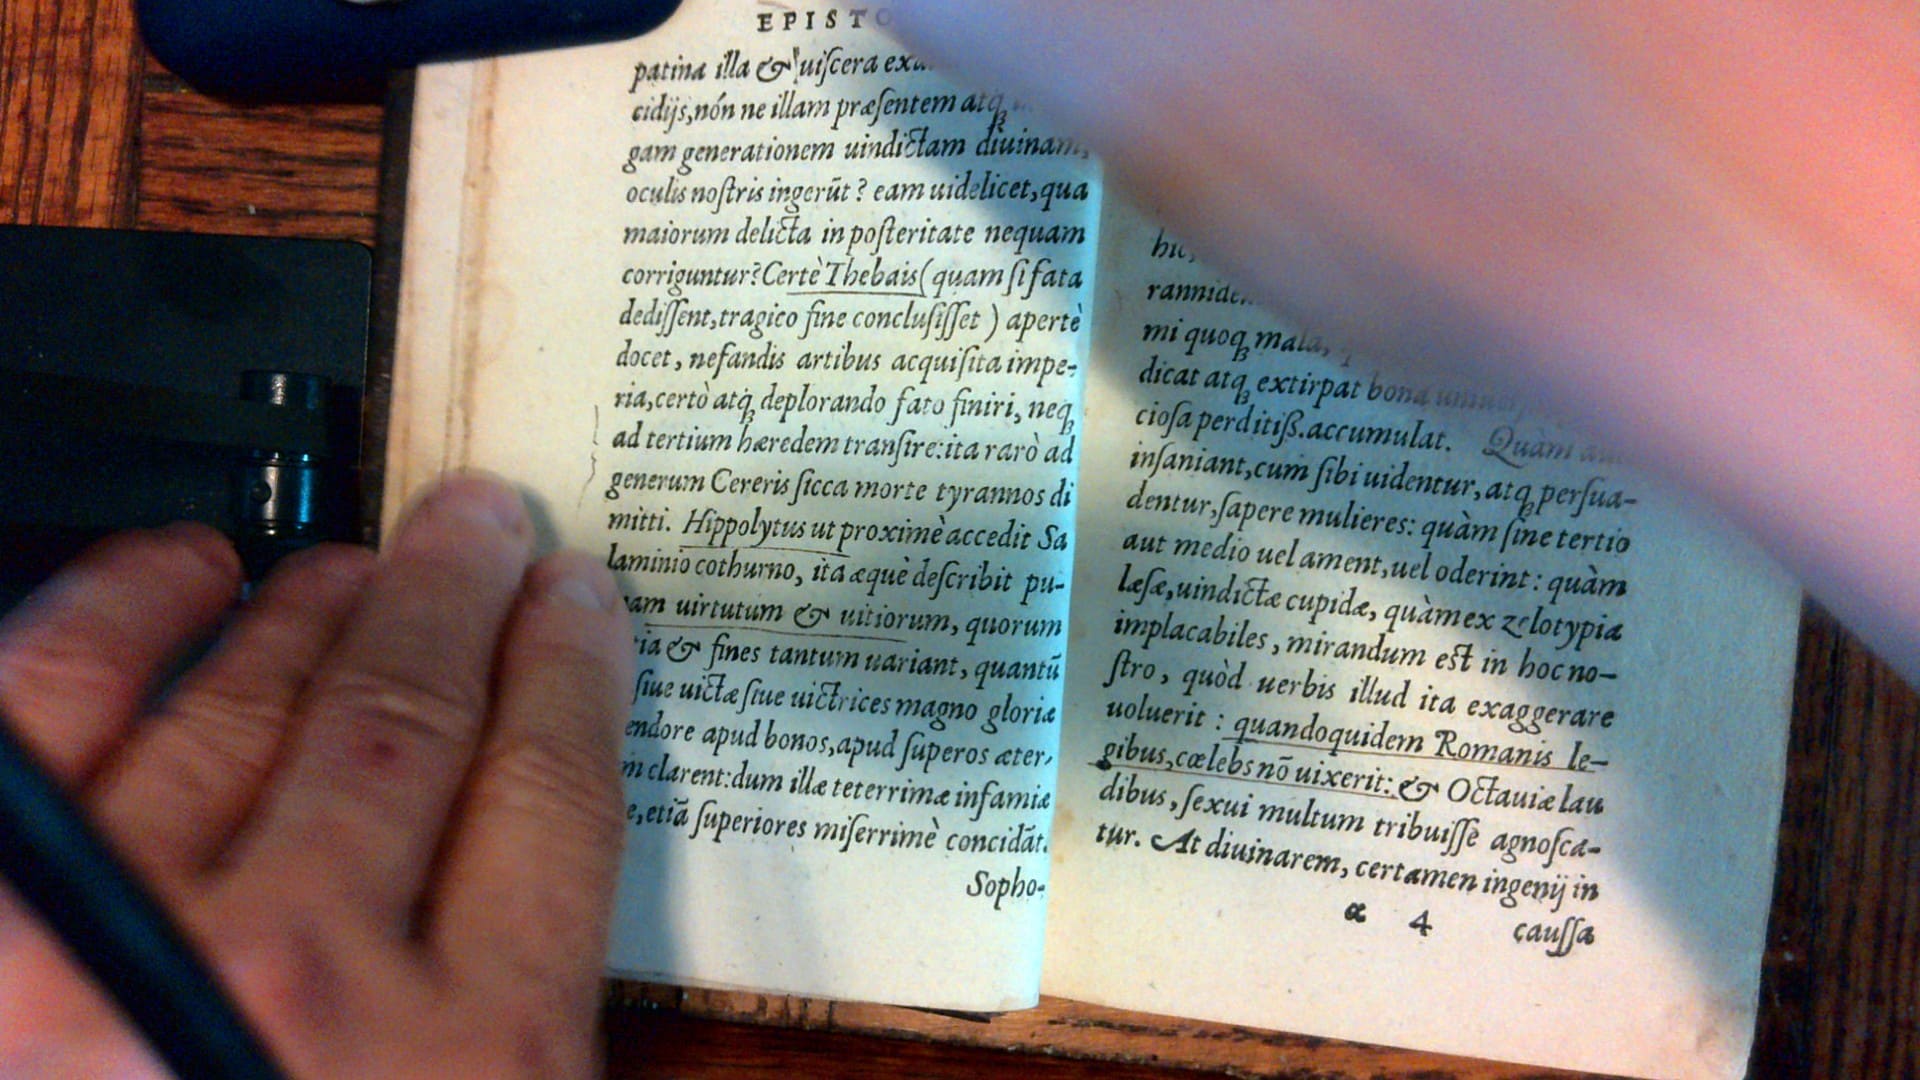 EPISTO
patina illa & uiſcera exa
cidijs, nón ne illam præſentem atq́
gam generationem uindictam diuinam,
oculis noſtris ingerūt? eam uidelicet, qua
maiorum delicta in poſteritate nequam
corriguntur? Certè Thebais (quam ſi fata
dediſſent, tragico fine concluſiſſet) apertè
docet, nefandis artibus acquiſita impe-
ria, certò atq́ deplorando fato finiri, neq́
ad tertium hæredem tranſire: ita rarò ad
generum Cereris ſicca morte tyrannos di
mitti. Hippolytus ut proximè accedit Sa
laminio cothurno, ita æquè deſcribit pu-
nam uirtutum & uitiorum, quorum
ria & fines tantum uariant, quantū
ſiue uictæ ſiue uictrices magno gloriæ
endore apud bonos, apud ſuperos æter,
m clarent: dum illæ teterrimæ infamiæ
e, etiā ſuperiores miſerrimè concidāt.
Sopho-
hic,
rannide
mi quoq́ mala,
dicat atq́ extirpat bona
cioſa perditiß. accumulat. Quàm
inſaniant, cum ſibi uidentur, atq́ perſua-
dentur, ſapere mulieres: quàm ſine tertio
aut medio uel ament, uel oderint: quàm
læſæ, uindictæ cupidæ, quàm ex zelotypia
implacabiles, mirandum est in hoc no-
ſtro, quòd uerbis illud ita exaggerare
uoluerit: quandoquidem Romanis le-
gibus, cœlebs nō uixerit: & Octauiæ lau
dibus, ſexui multum tribuiſſe agnoſca-
tur. At diuinarem, certamen ingenij in
α 4 cauſſa